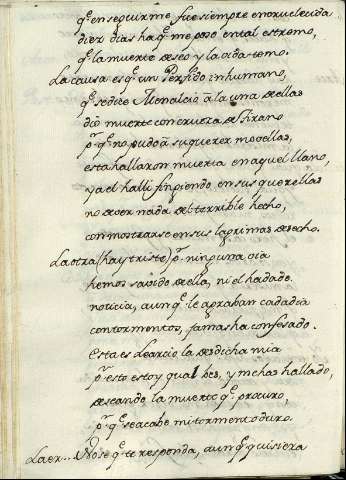 q̃. en seguirme fue siempre encruelecida
diez dias ha q̃. me puso en tal estremo,
q̃. la muerte deseo y la vida temo.
La causa es q̃. un Perfido inhumano,
q̃. se dice Menalcio à la una de ellas
dio muerte con crueza de tirano
p.r q̃. no pudo à su querer movellas,
esta hallaron muerta en aquel llano,
y a el halli fingiendo en sus querellas
no saver nada del terrible hecho,
con mostrarse en sus lagrimas desecho.
La otra (hay triste) p.r ninguna via
hemos savido de ella, ni el ha dado
noticia, aunq̃. le apraban cada dia
con tormentos, jamas ha confesado.
Esta es Learcio la desdicha mia
p.r esto estoy qual bes, y me has hallado,
deseando la muerte q̃. procuro,
p.r q̃. se acabe mi tormento duro.
Lear... No se q̃. te responda, aunq̃. quisiera